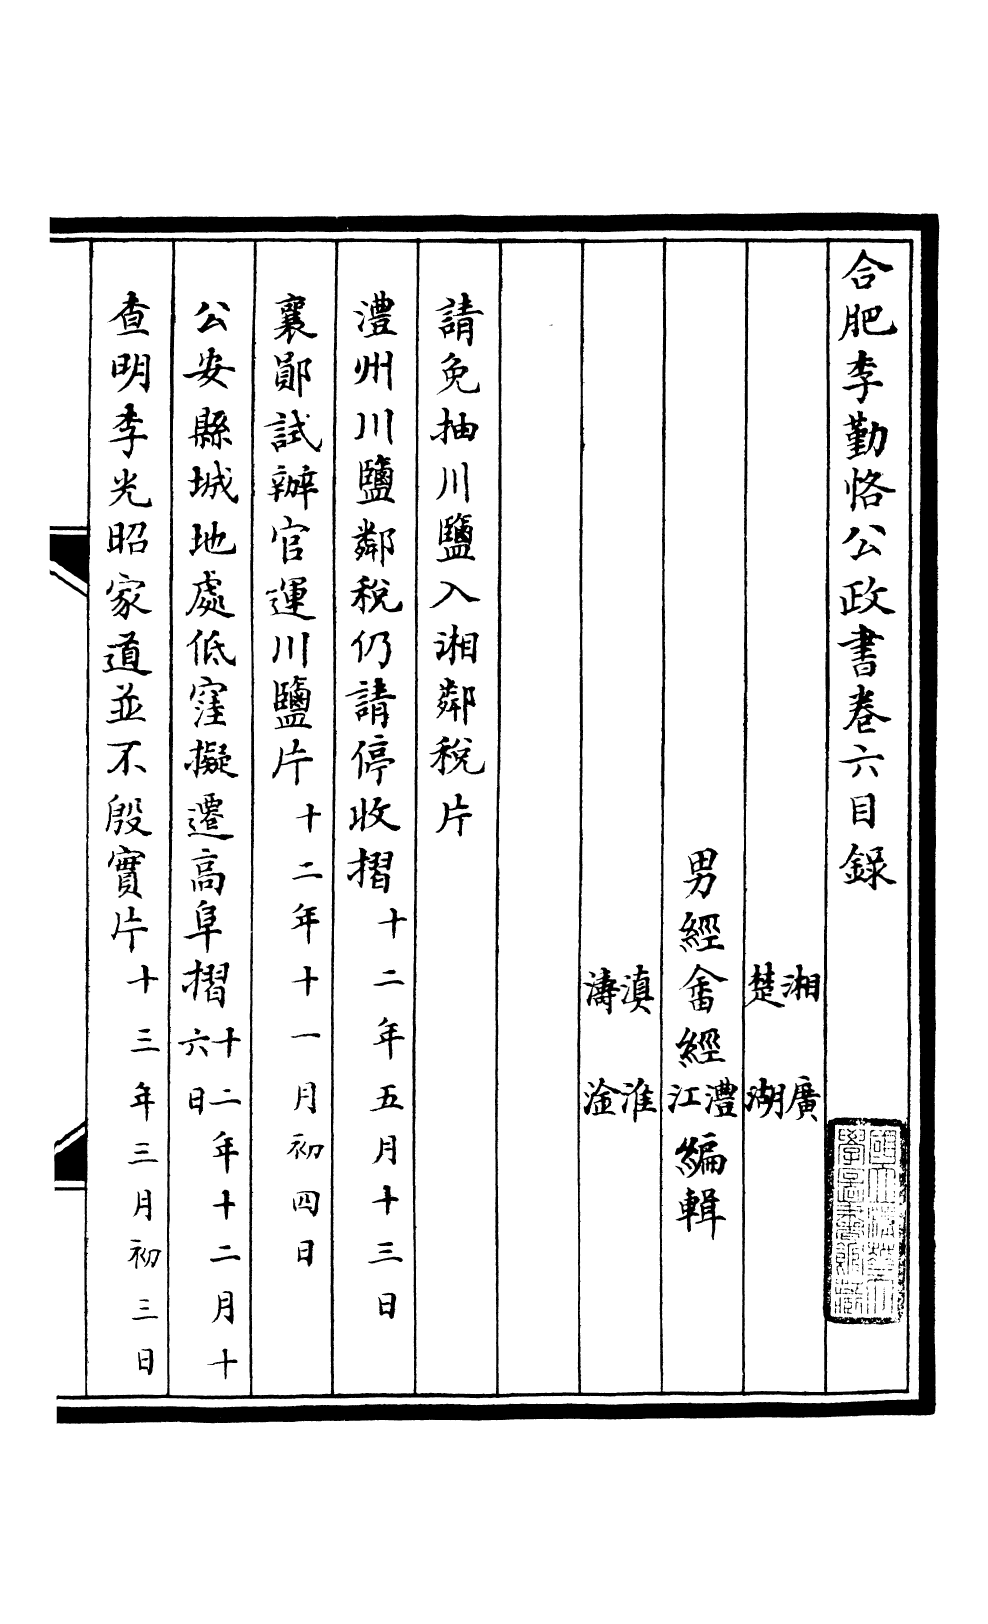 合肥李勤恪公政書卷六目錄
國立清華大
學圖書館藏
湘 廣
楚 湖
男經畬經澧江編輯
滇 淮
濤 淦
請免抽川鹽入湘鄰稅片
澧州川鹽鄰稅仍請停收摺十二年五月十三日
襄鄖試辦官運川鹽片十二年十一月初四日
公安縣城地處低窪擬遷高阜摺十二年十二月十六日
查明李光昭家道並不殷實片十三年三月初三日